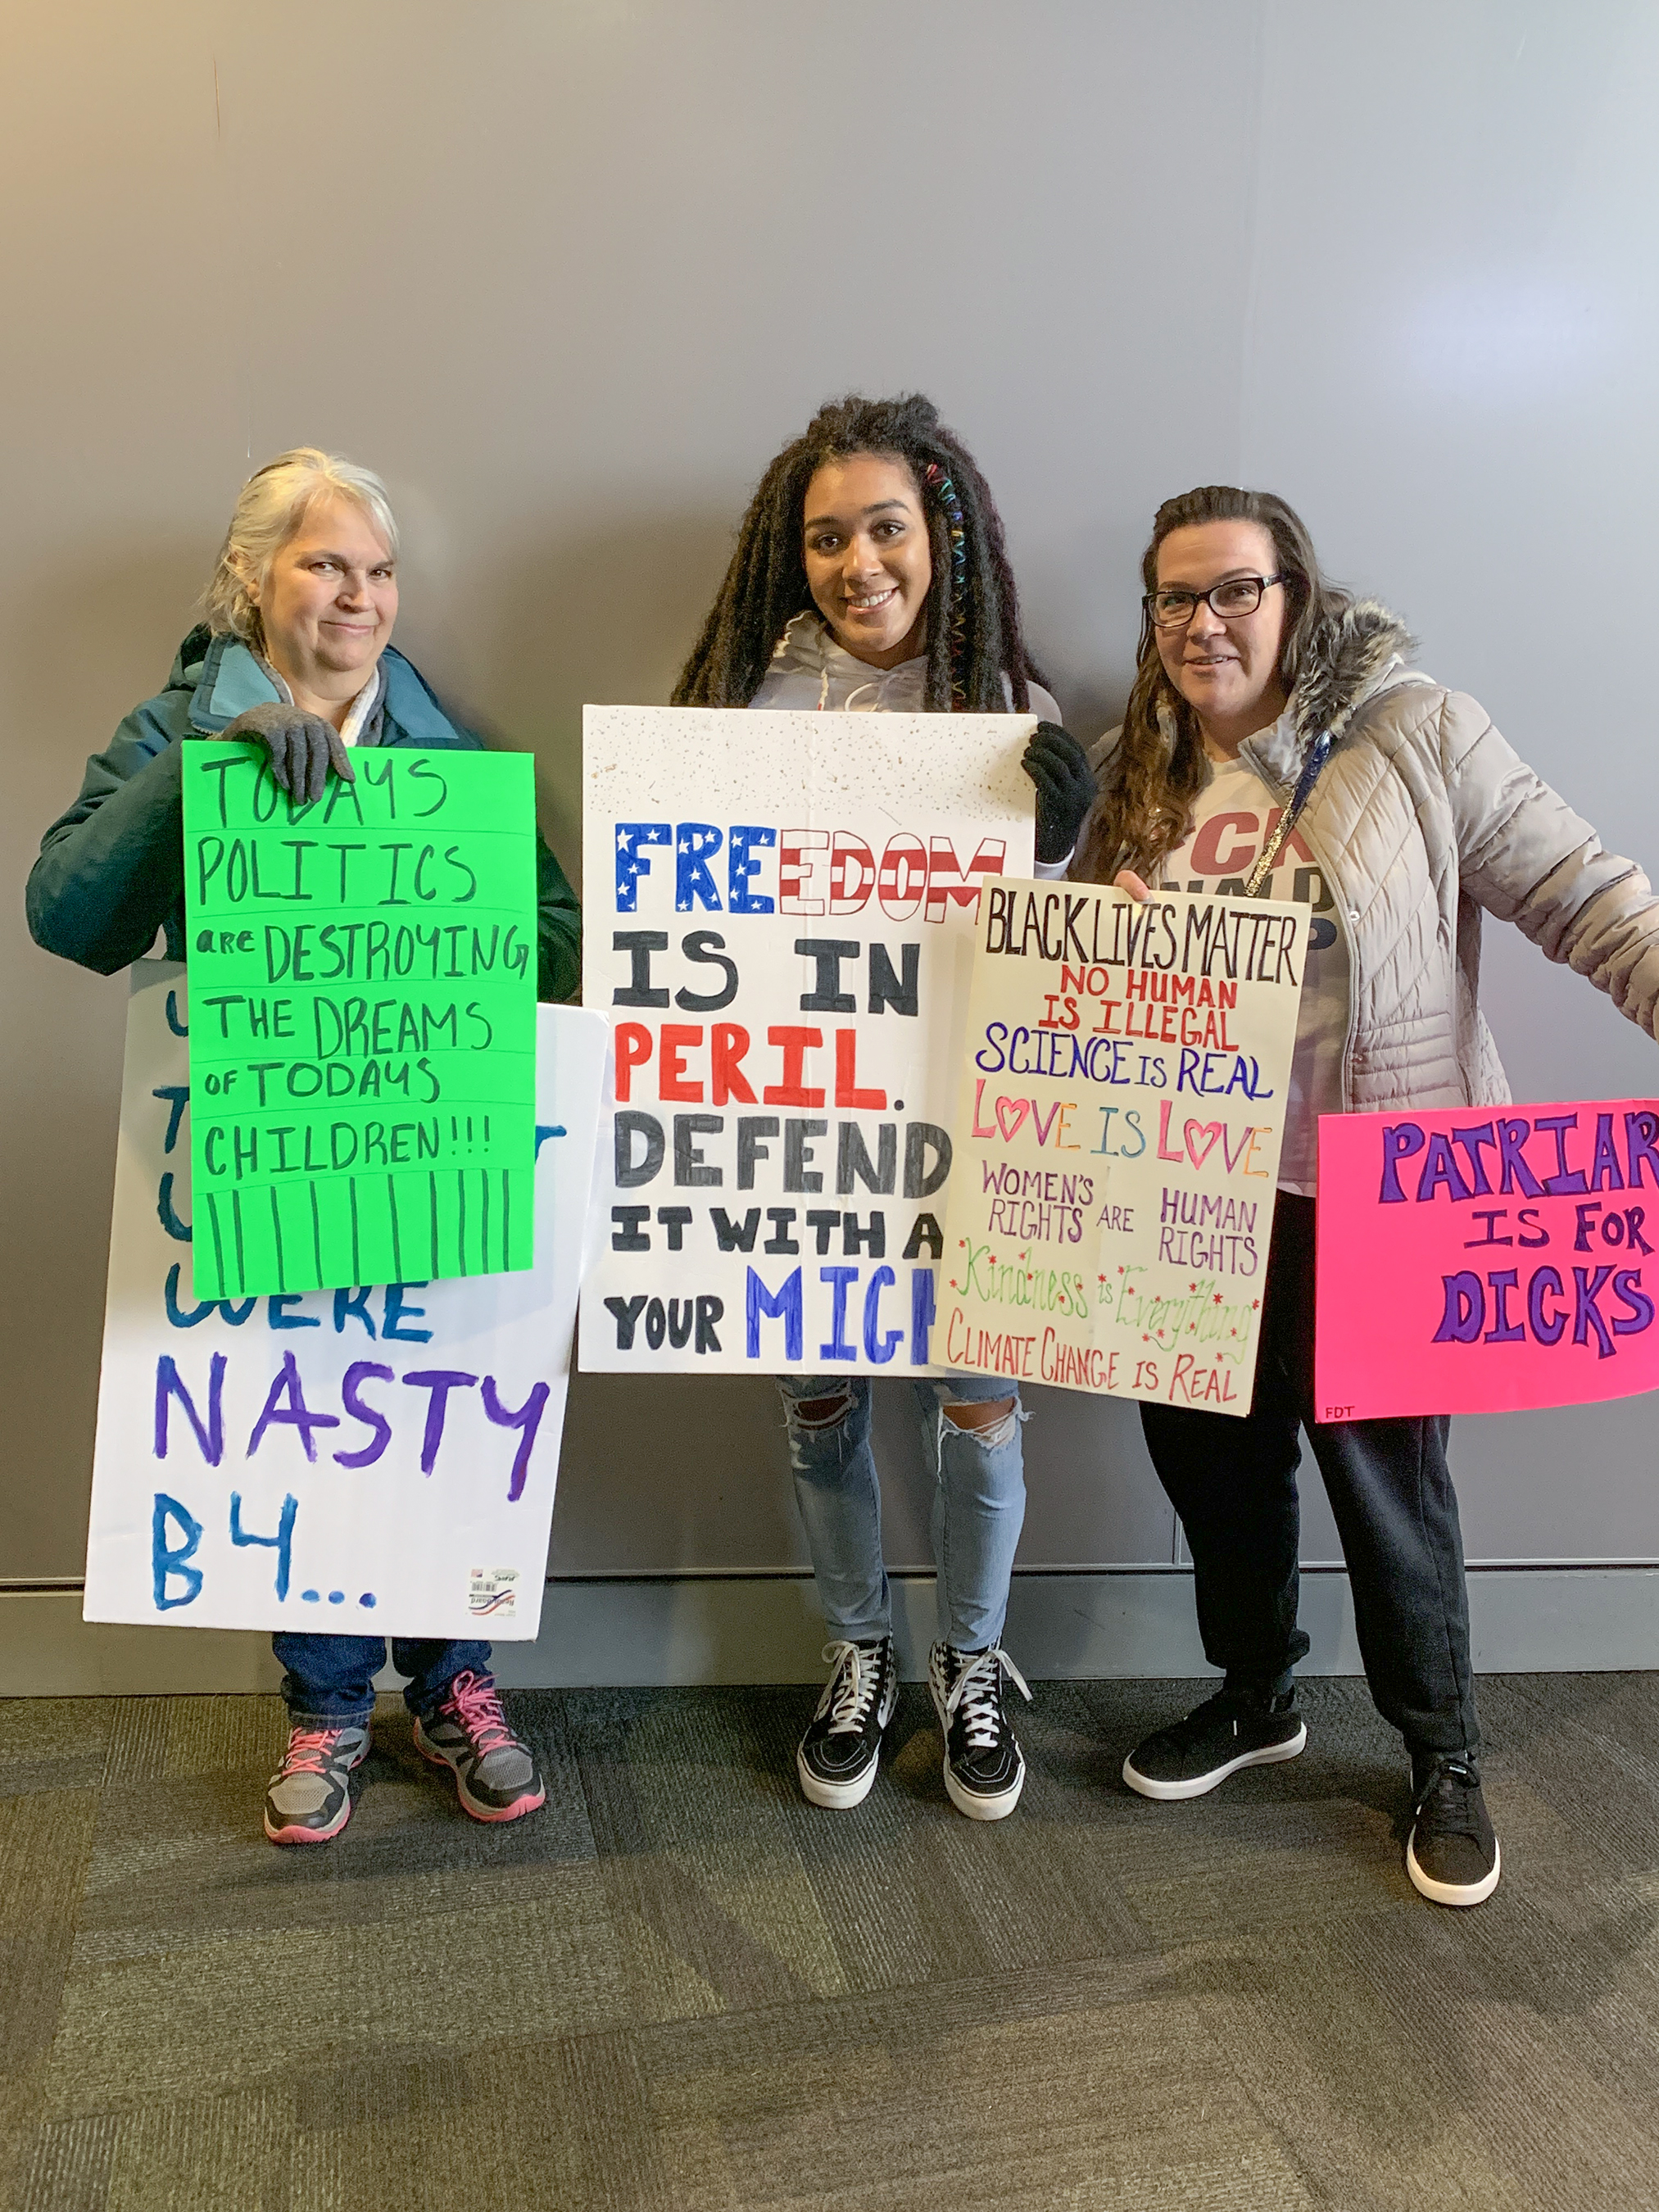 TODAYS
POLITICS
are DESTROYING
THE DREAMS
OF TODAYS
CHILDREN!!!
WERE
NASTY
B4...
FREEDOM
IS IN
PERIL.
DEFEND
IT WITH A
YOUR MIGH
BLACK LIVES MATTER
NO HUMAN
IS ILLEGAL
SCIENCE IS REAL
LOVE IS LOVE
WOMEN'S
RIGHTS ARE HUMAN
RIGHTS
Kindness is Everything
CLIMATE CHANGE IS REAL
PATRIAR
IS FOR
DICKS
FDT